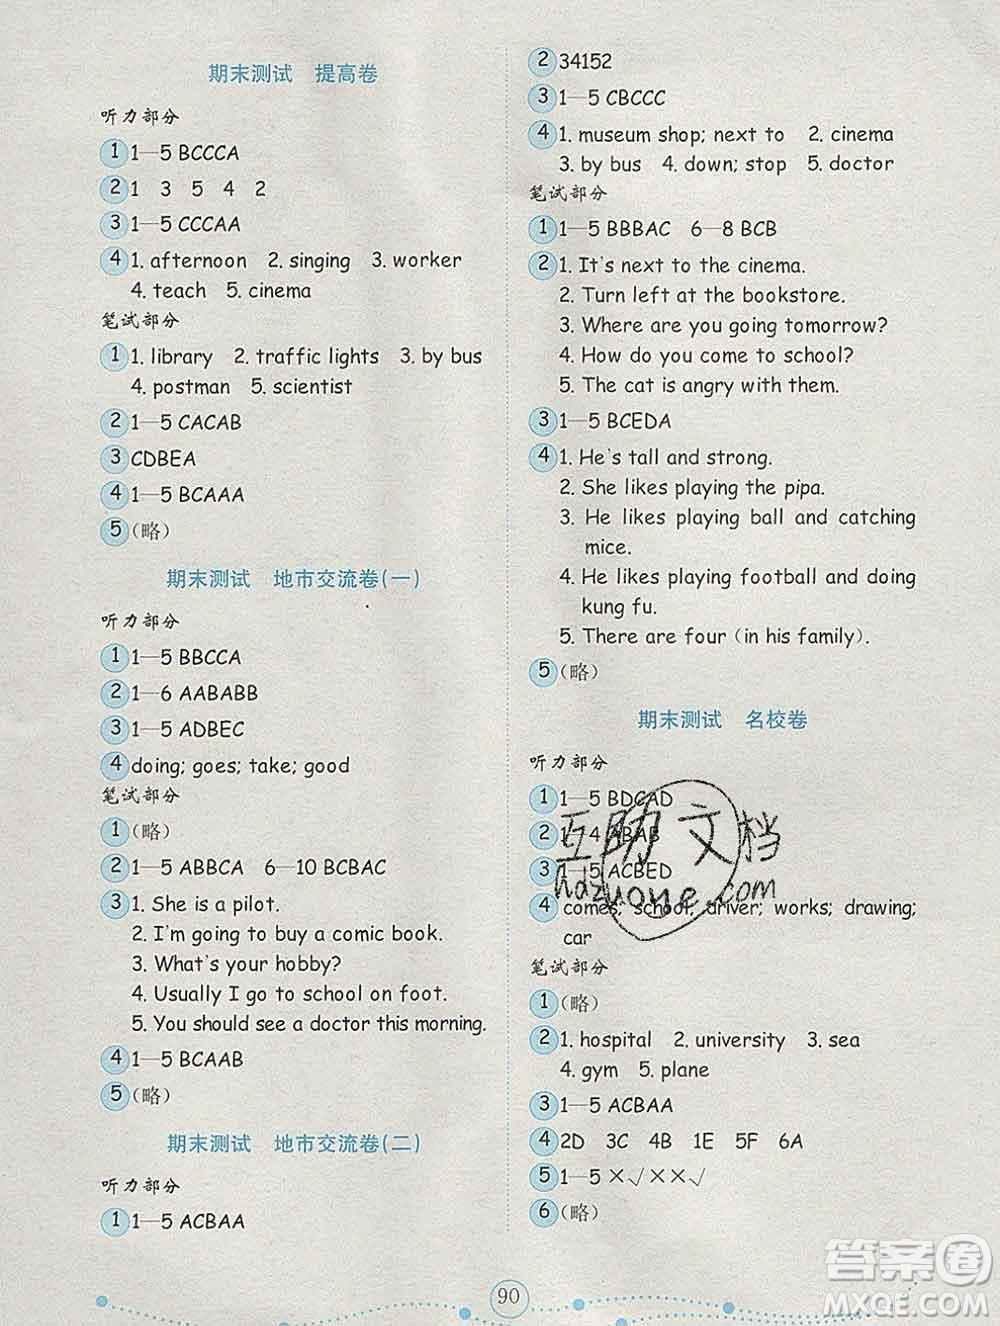 期末测试 提高卷
听力部分
1 1—5 BCCCA
2 1 3 5 4 2
3 1—5 CCCAA
4 1. afternoon 2. singing 3. worker
4. teach 5. cinema
笔试部分
1 1. library 2. traffic lights 3. by bus
4. postman 5. scientist
2 1—5 CACAB
3 CDBEA
4 1—5 BCAAA
5 (略)
期末测试 地市交流卷(一)
听力部分
1 1—5 BBCCA
2 1—6 AABABB
3 1—5 ADBEC
4 doing; goes; take; good
笔试部分
1 (略)
2 1—5 ABBCA 6—10 BCBAC
3 1. She is a pilot.
2. I'm going to buy a comic book.
3. What's your hobby?
4. Usually I go to school on foot.
5. You should see a doctor this morning.
4 1—5 BCAAB
5 (略)
期末测试 地市交流卷(二)
听力部分
1 1—5 ACBAA
2 34152
3 1—5 CBCCC
4 1. museum shop; next to 2. cinema
3. by bus 4. down; stop 5. doctor
笔试部分
1 1—5 BBBAC 6—8 BCB
2 1. It's next to the cinema.
2. Turn left at the bookstore.
3. Where are you going tomorrow?
4. How do you come to school?
5. The cat is angry with them.
3 1—5 BCEDA
4 1. He's tall and strong.
2. She likes playing the pipa.
3. He likes playing ball and catching
mice.
4. He likes playing football and doing
kung fu.
5. There are four (in his family).
5 (略)
期末测试 名校卷
听力部分
1 1—5 BDCAD
2 1—4 ABAB
3 1—5 ACBED
4 comes; school; driver; works; drawing;
car
笔试部分
1 (略)
2 1. hospital 2. university 3. sea
4. gym 5. plane
3 1—5 ACBAA
4 2D 3C 4B 1E 5F 6A
5 1—5 ×√××√
6 (略)
互助文档
hdzuoye.com
90
答案圈
MXQE.COM